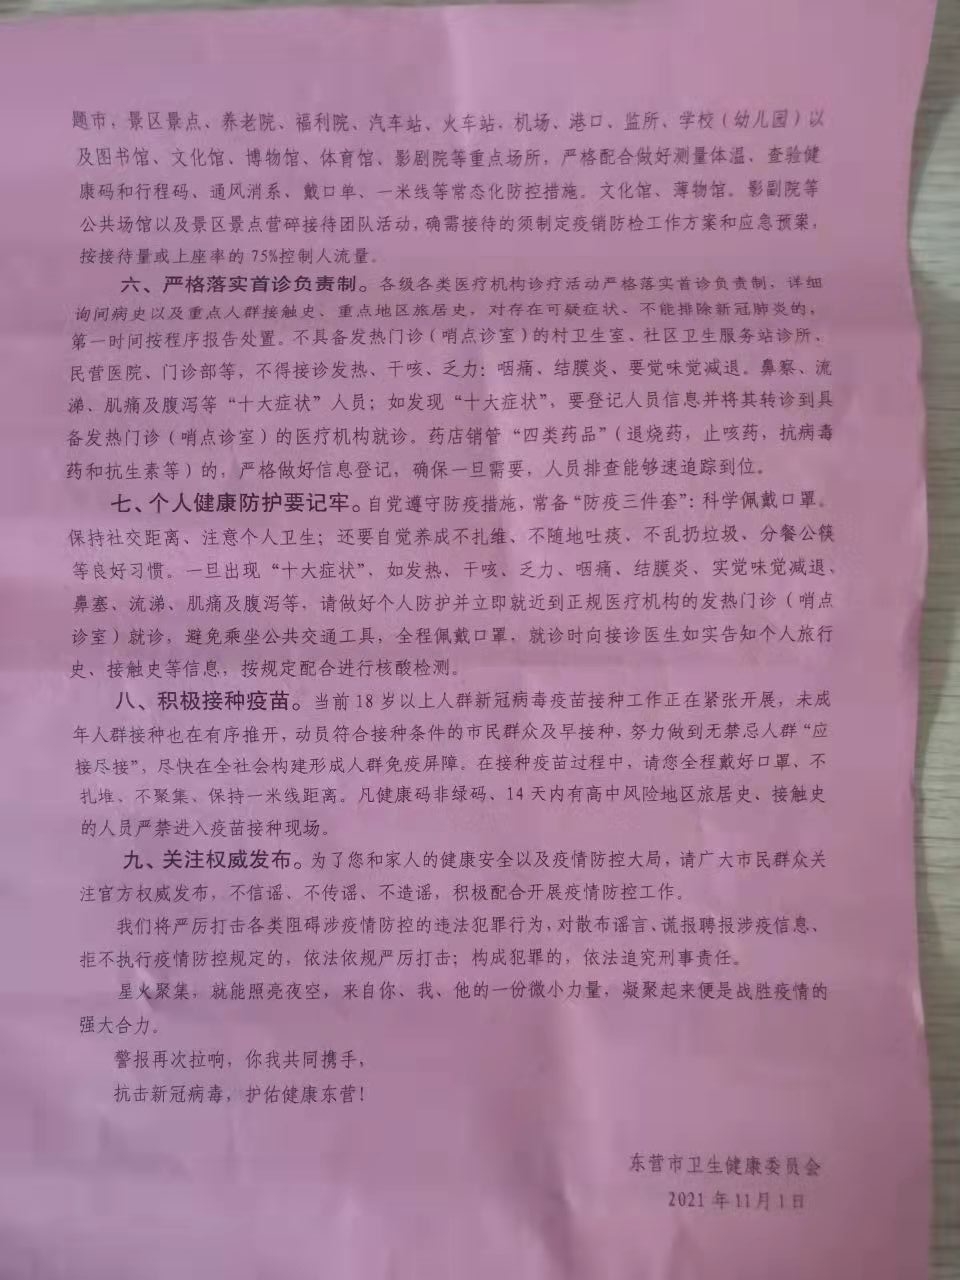 题市，景区景点、养老院、福利院、汽车站、火车站，机场、港口、监所、学校（幼儿园）以
及图书馆、文化馆、博物馆、体育馆、影剧院等重点场所，严格配合做好测量体温、查验健
康码和行程码、通风消系、戴口单、一米线等常态化防控措施。文化馆、薄物馆。影副院等
公共场馆以及景区景点营碎接待团队活动，确需接待的须制定疫销防检工作方案和应急预案，
按接待量或上座率的75%控制人流量。
六、严格落实首诊负责制。各级各类医疗机构诊疗活动严格落实首诊负责制，详细
询间病史以及重点人群接触史、重点地区旅居史，对存在可疑症状、不能排除新冠肺炎的，
第一时间按程序报告处置。不具备发热门诊（哨点诊室）的村卫生室、社区卫生服务站诊所、
民营医院、门诊部等，不得接诊发热、干咳、乏力：咽痛、结膜炎、要觉味觉减退。鼻察、流
涕、肌痛及腹泻等“十大症状”人员；如发现“十大症状”，要登记人员信息并将其转诊到具
备发热门诊（哨点诊室）的医疗机构就诊。药店销管“四类药品”（退烧药，止咳药，抗病毒
药和抗生素等）的，严格做好信息登记，确保一旦需要，人员排查能够速追踪到位。
七、个人健康防护要记牢。自党遵守防疫措施，常备“防疫三件套”：科学佩戴口罩。
保持社交距离、注意个人卫生；还要自觉养成不扎维、不随地吐痰、不乱扔垃圾、分餐公筷
等良好习惯。一旦出现“十大症状”，如发热、干咳、乏力、咽痛、结膜炎、实觉味觉减退、
鼻塞、流涕、肌痛及腹泻等，请做好个人防护并立即就近到正规医疗机构的发热门诊（哨点
诊室）就诊，避免乘坐公共交通工具，全程佩戴口罩，就诊时向接诊医生如实告知个人旅行
史、接触史等信息，按规定配合进行核酸检测。
八、积极接种疫苗。当前18岁以上人群新冠病毒疫苗接种工作正在紧张开展，未成
年人群接种也在有序推开，动员符合接种条件的市民群众及早接种，努力做到无禁忌人群“应
接尽接”，尽快在全社会构建形成人群免疫屏障。在接种疫苗过程中，请您全程戴好口罩、不
扎堆、不聚集、保持一米线距离。凡健康码非绿码、14天内有高中风险地区旅居史、接触史
的人员严禁进入疫苗接种现场。
九、关注权威发布。为了您和家人的健康安全以及疫情防控大局，请广大市民群众关
注官方权威发布，不信谣、不传谣、不造谣，积极配合开展疫情防控工作。
我们将严厉打击各类阻碍涉疫情防控的违法犯罪行为，对散布谣言、谎报聘报涉疫信息、
拒不执行疫情防控规定的，依法依规严厉打击；构成犯罪的，依法追究刑事责任。
星火聚集，就能照亮夜空，来自你、我、他的一份微小力量，凝聚起来便是战胜疫情的
强大合力。
警报再次拉响，你我共同携手，
抗击新冠病毒，护佑健康东营！
东营市卫生健康委员会
2021年11月1日